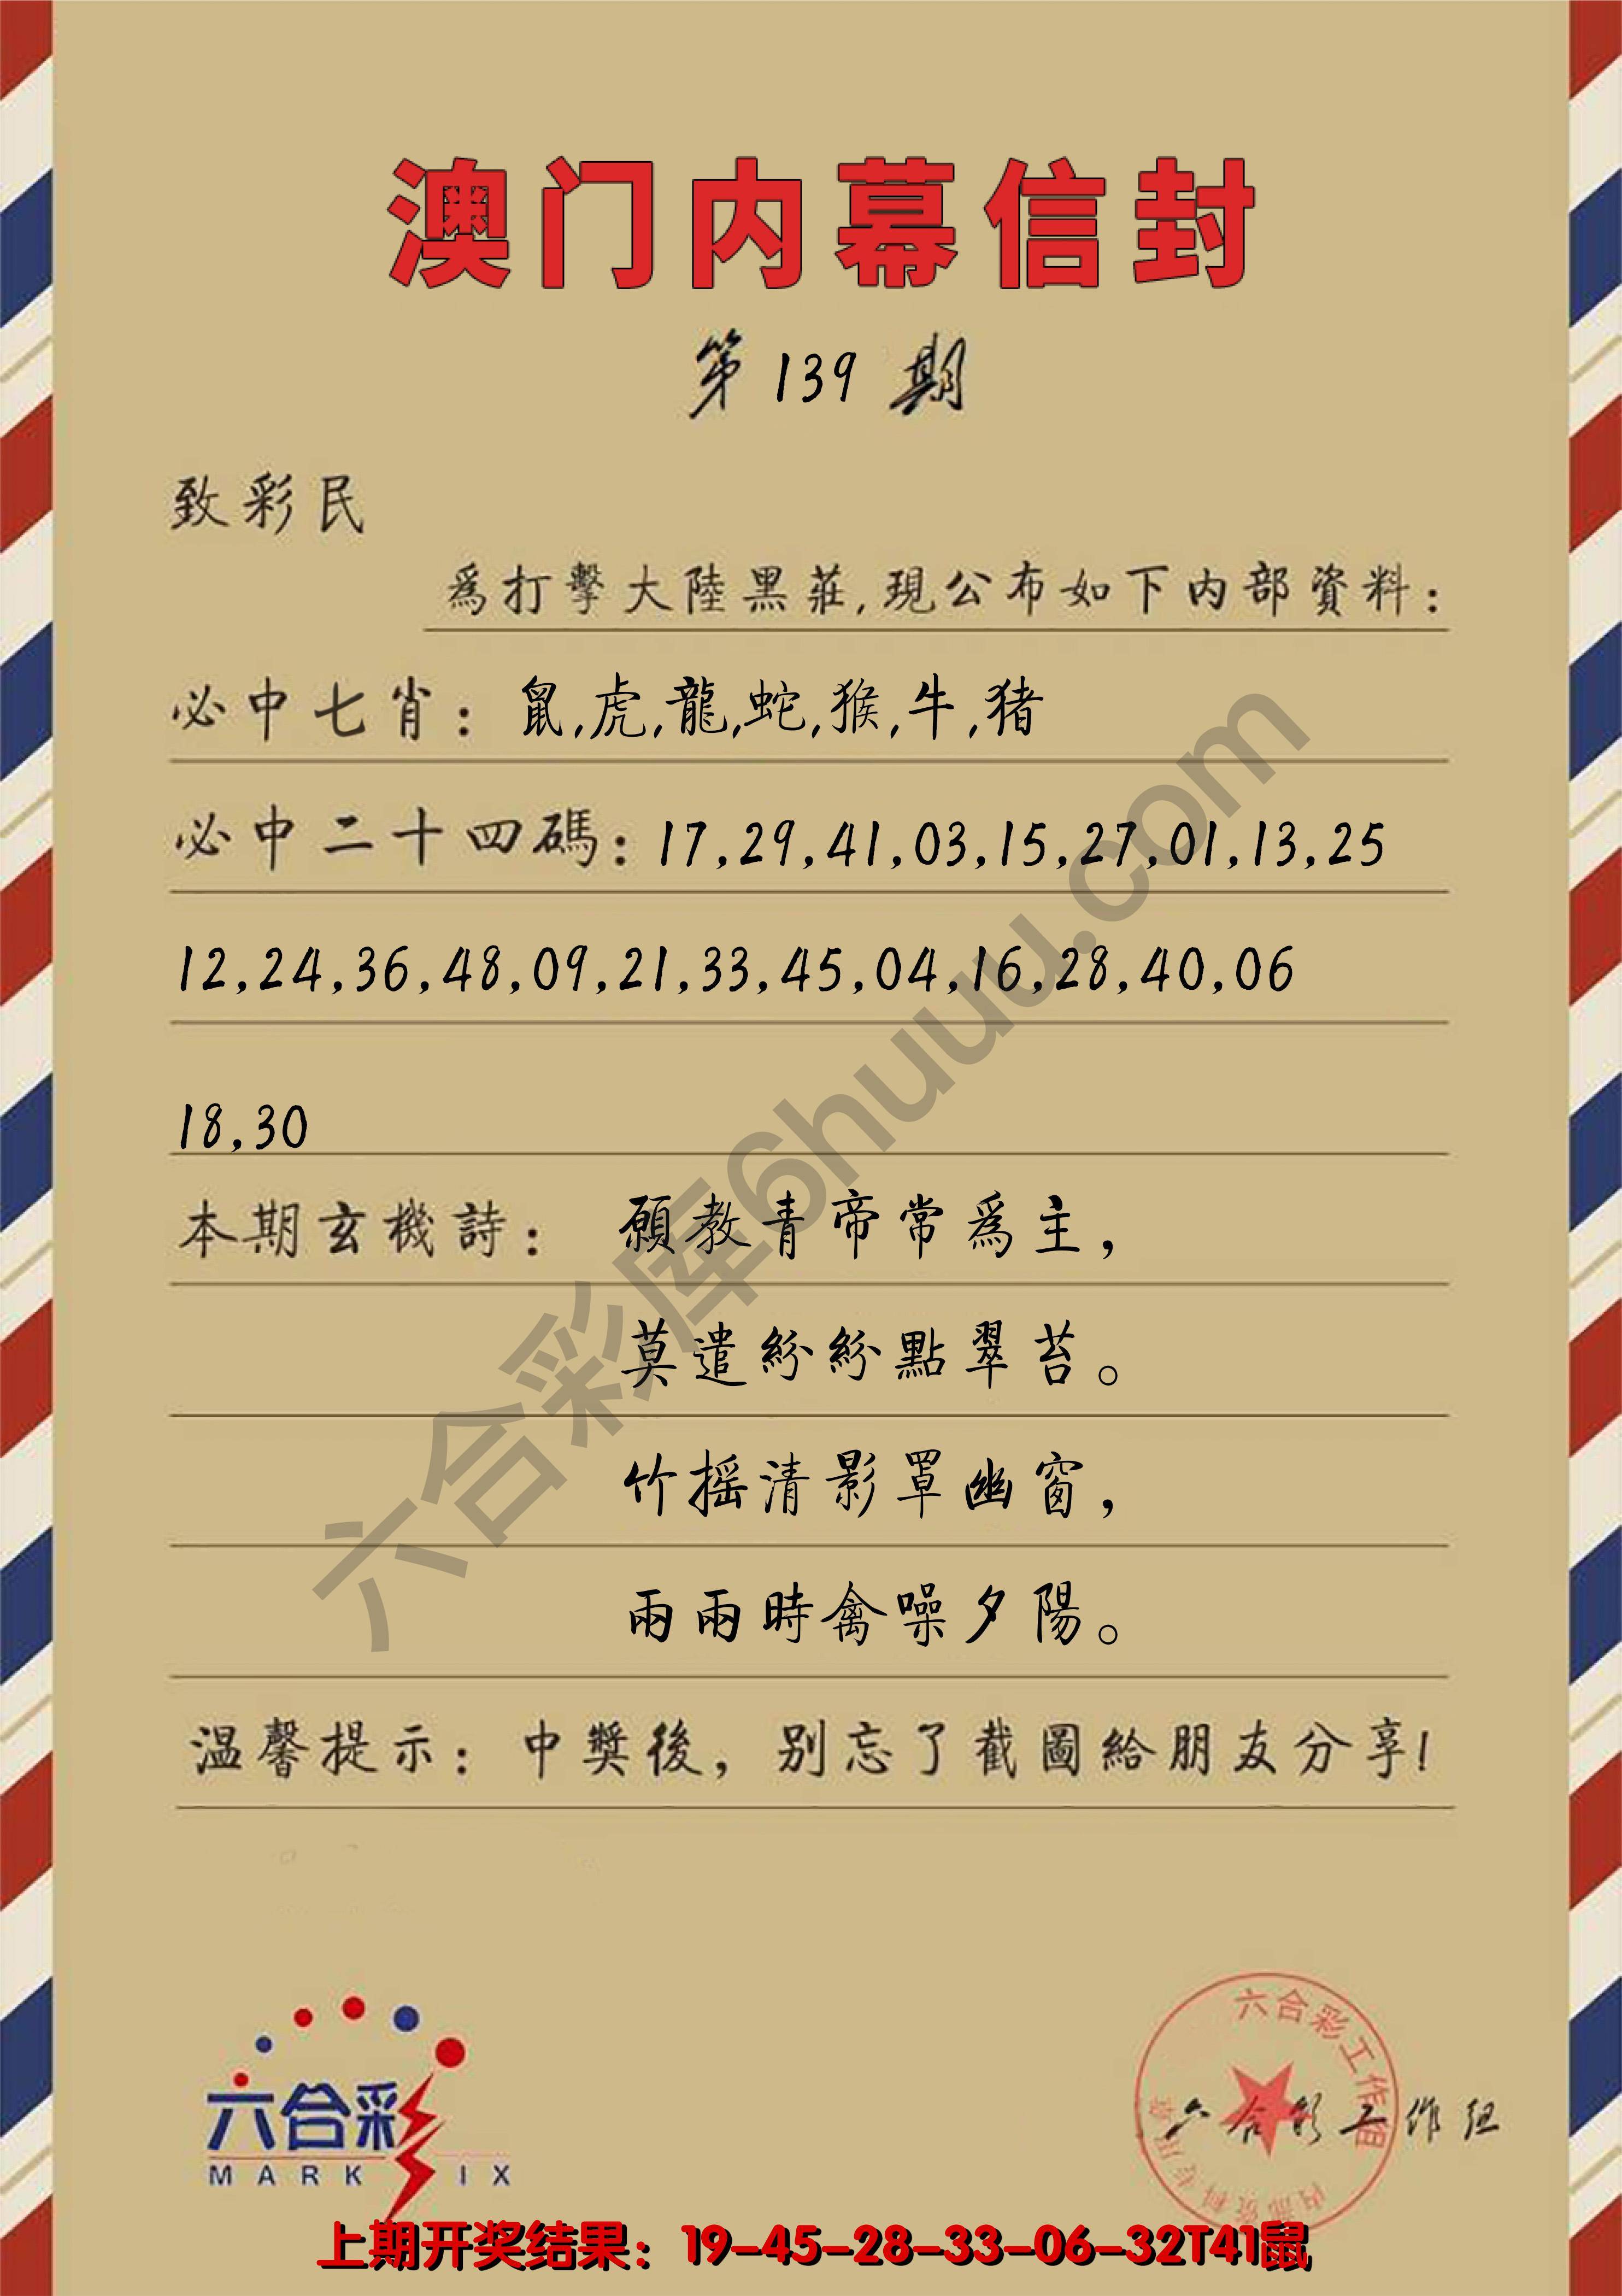 澳门内幕信封
第139期
致彩民
爲打擊大陸黑莊,現公布如下内部資料:
必中七肖: 鼠,虎,龍,蛇,猴,牛,猪
必中二十四碼: 17,29,41,03,15,27,01,13,25
12,24,36,48,09,21,33,45,04,16,28,40,06
18,30
本期玄機詩: 願教青帝常爲主,
莫遣紛紛點翠苔。
竹摇清影罩幽窗,
兩兩時禽噪夕陽。
温馨提示: 中獎後, 别忘了截圖給朋友分享!
六合彩库6huuu.com
六合彩
MARK IX
六合彩工作组
六合彩工作组
上期开奖结果: 19-45-28-33-06-32T41鼠